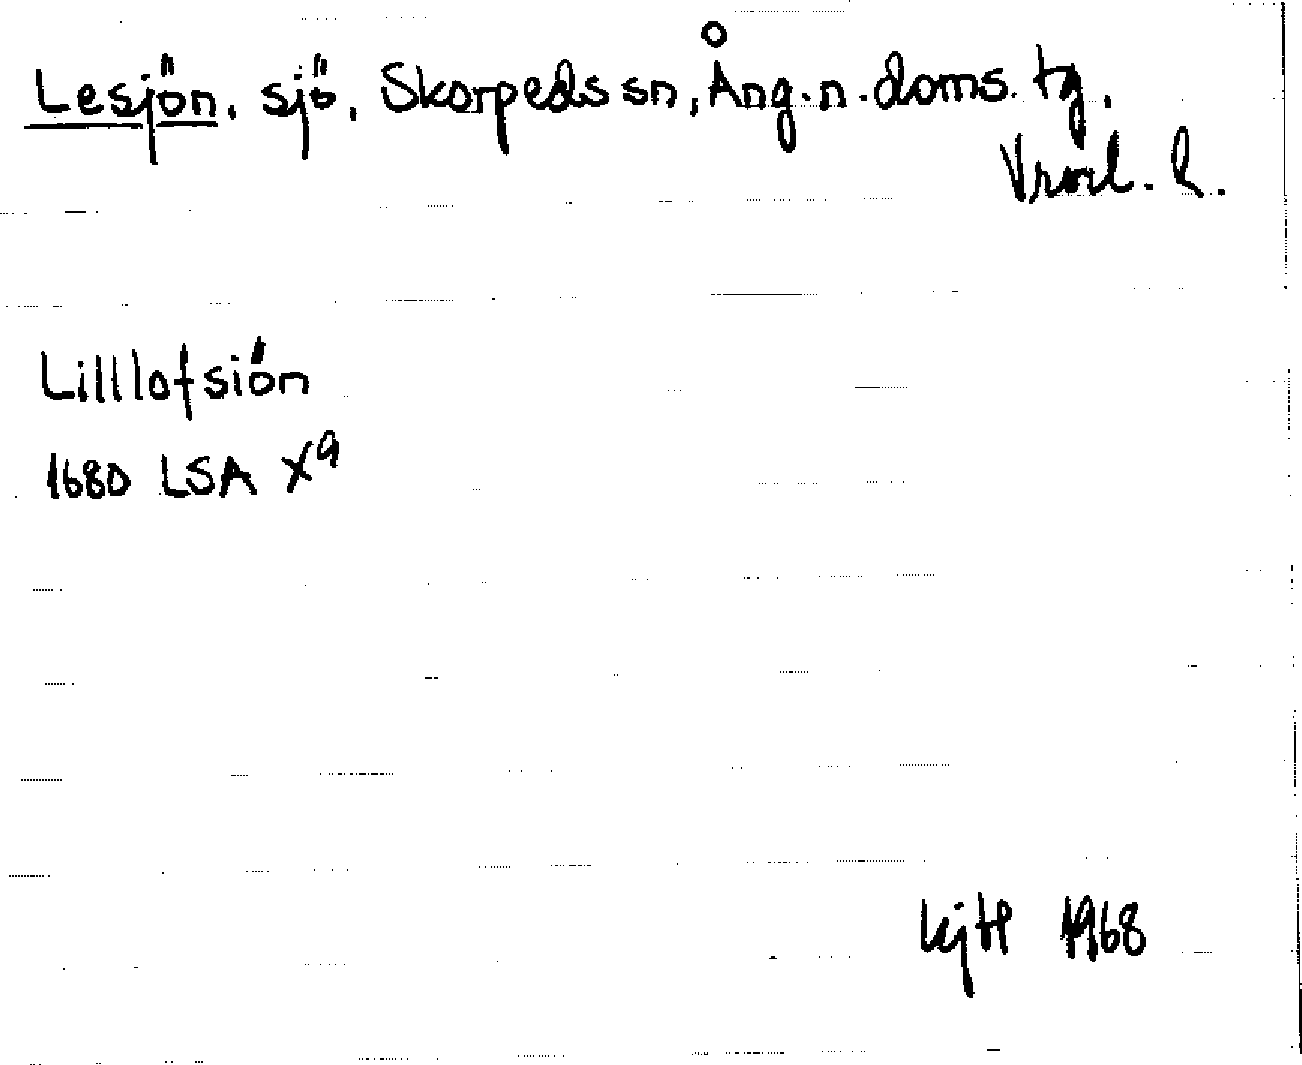 Lesjön, sjö, Skorpeds sn, Ång. n. doms. tg,
Vnorl. l.
Lilllofsiön
1680 LSA X9
1968